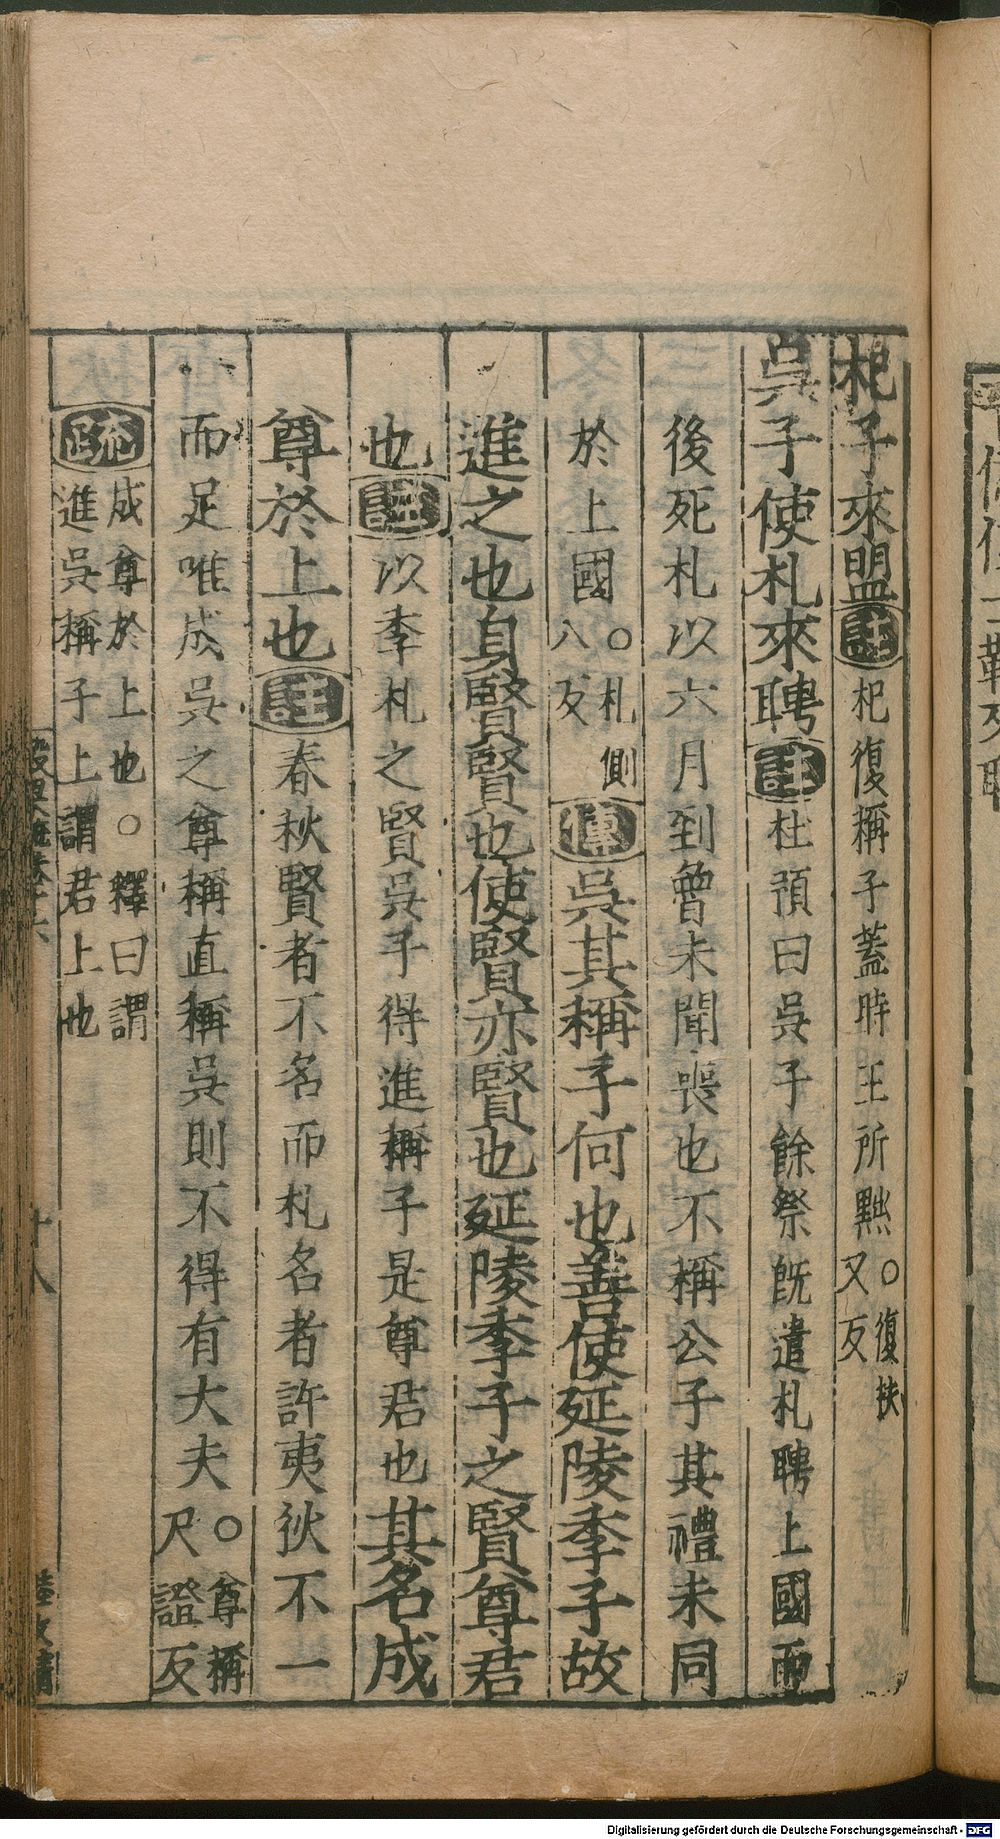 杞子來盟註杞復稱子蓋時王所黜○復扶又反
吳子使札來聘註杜預曰吳子餘祭旣遣札聘上國而
後死札以六月到魯未聞喪也不稱公子其禮未同
於上國○札側八反傳吳其稱子何也善使延陵季子故
進之也身賢賢也使賢亦賢也延陵季子之賢尊君
也註以季札之賢吳子得進稱子是尊君也其名成
尊於上也註春秋賢者不名而札名者許夷狄不一
而足唯成吳之尊稱直稱吳則不得有大夫○尊稱尺證反
疏成尊於上也○釋曰謂進吳稱子上謂君上也
十八
Digitalisierung gefördert durch die Deutsche Forschungsgemeinschaft - DFG